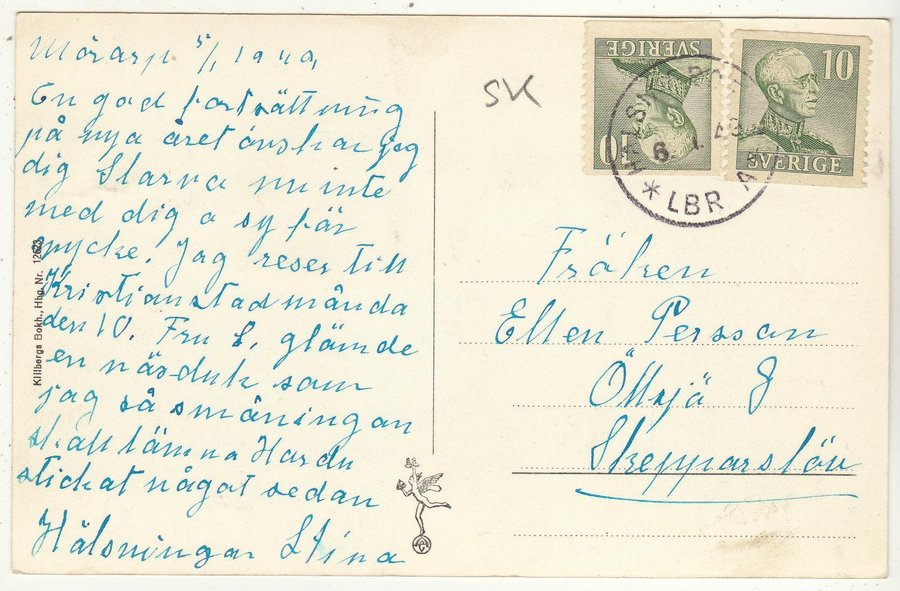 Mörarp 5/1 1949.
En god fortsättning
på nya året önskar jag
dig Slarva nu inte
med dig a sy för
mycke. Jag reser till
Kristianstad månda
den 10. Fru E. glömde
en näsduk som
jag så småningan
skall lämna Har du
stickat något sedan
Hälsningar Stina
Killbergs Bokh., Hbg. Nr. 12623
SK
SVERIGE
10
10
SVERIGE
6. 1. 49
* LBR
Fröken
Ellen Persson
Skepparslöv